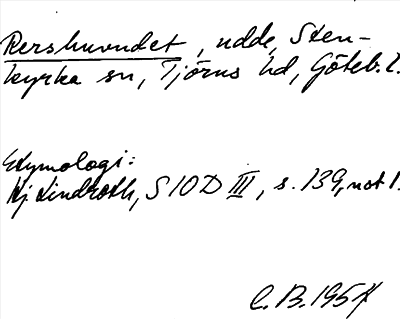 Pershuvudet, udde, Sten-
kyrka sn, Tjörns hd, Göteb. l.
Etymologi:
Hj Lindroth, SIOD III, s. 139, not 1.
C. B. 1957